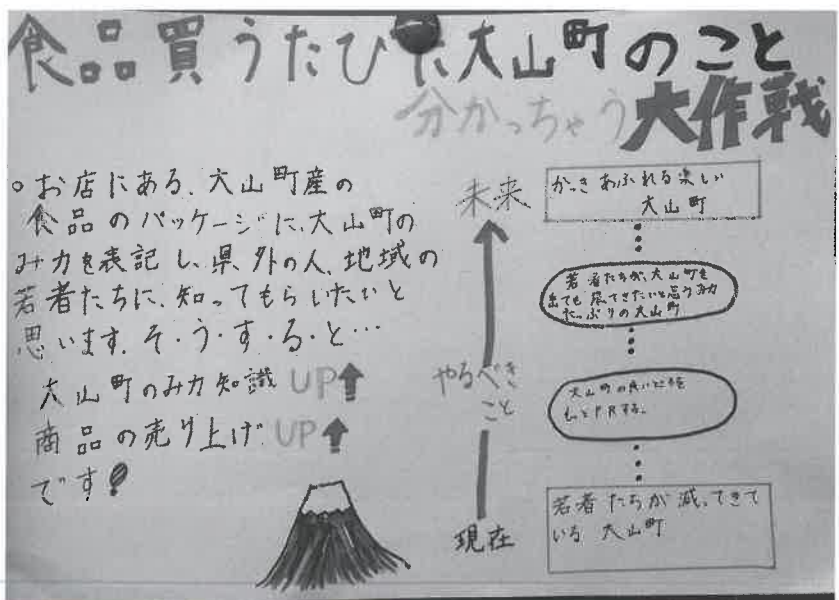 食品買うたびに大山町のこと
分かっちゃう大作戦
○お店にある、大山町産の
食品のパッケージに、大山町の
み力を表記し、県外の人、地域の
若者たちに、知ってもらいたいと
思います。そ・う・す・る・と…
大山町のみ力知識 UP↑
商品の売り上げ UP↑
です!
未来
やるべき
こと
現在
かっきあふれる楽しい
大山町
若者たちが、大山町を
出ても戻てきたいと思うみ力
たっぷりの大山町
大山町の良いところを
もっとPRする。
若者たちが減ってきて
いる 大山町